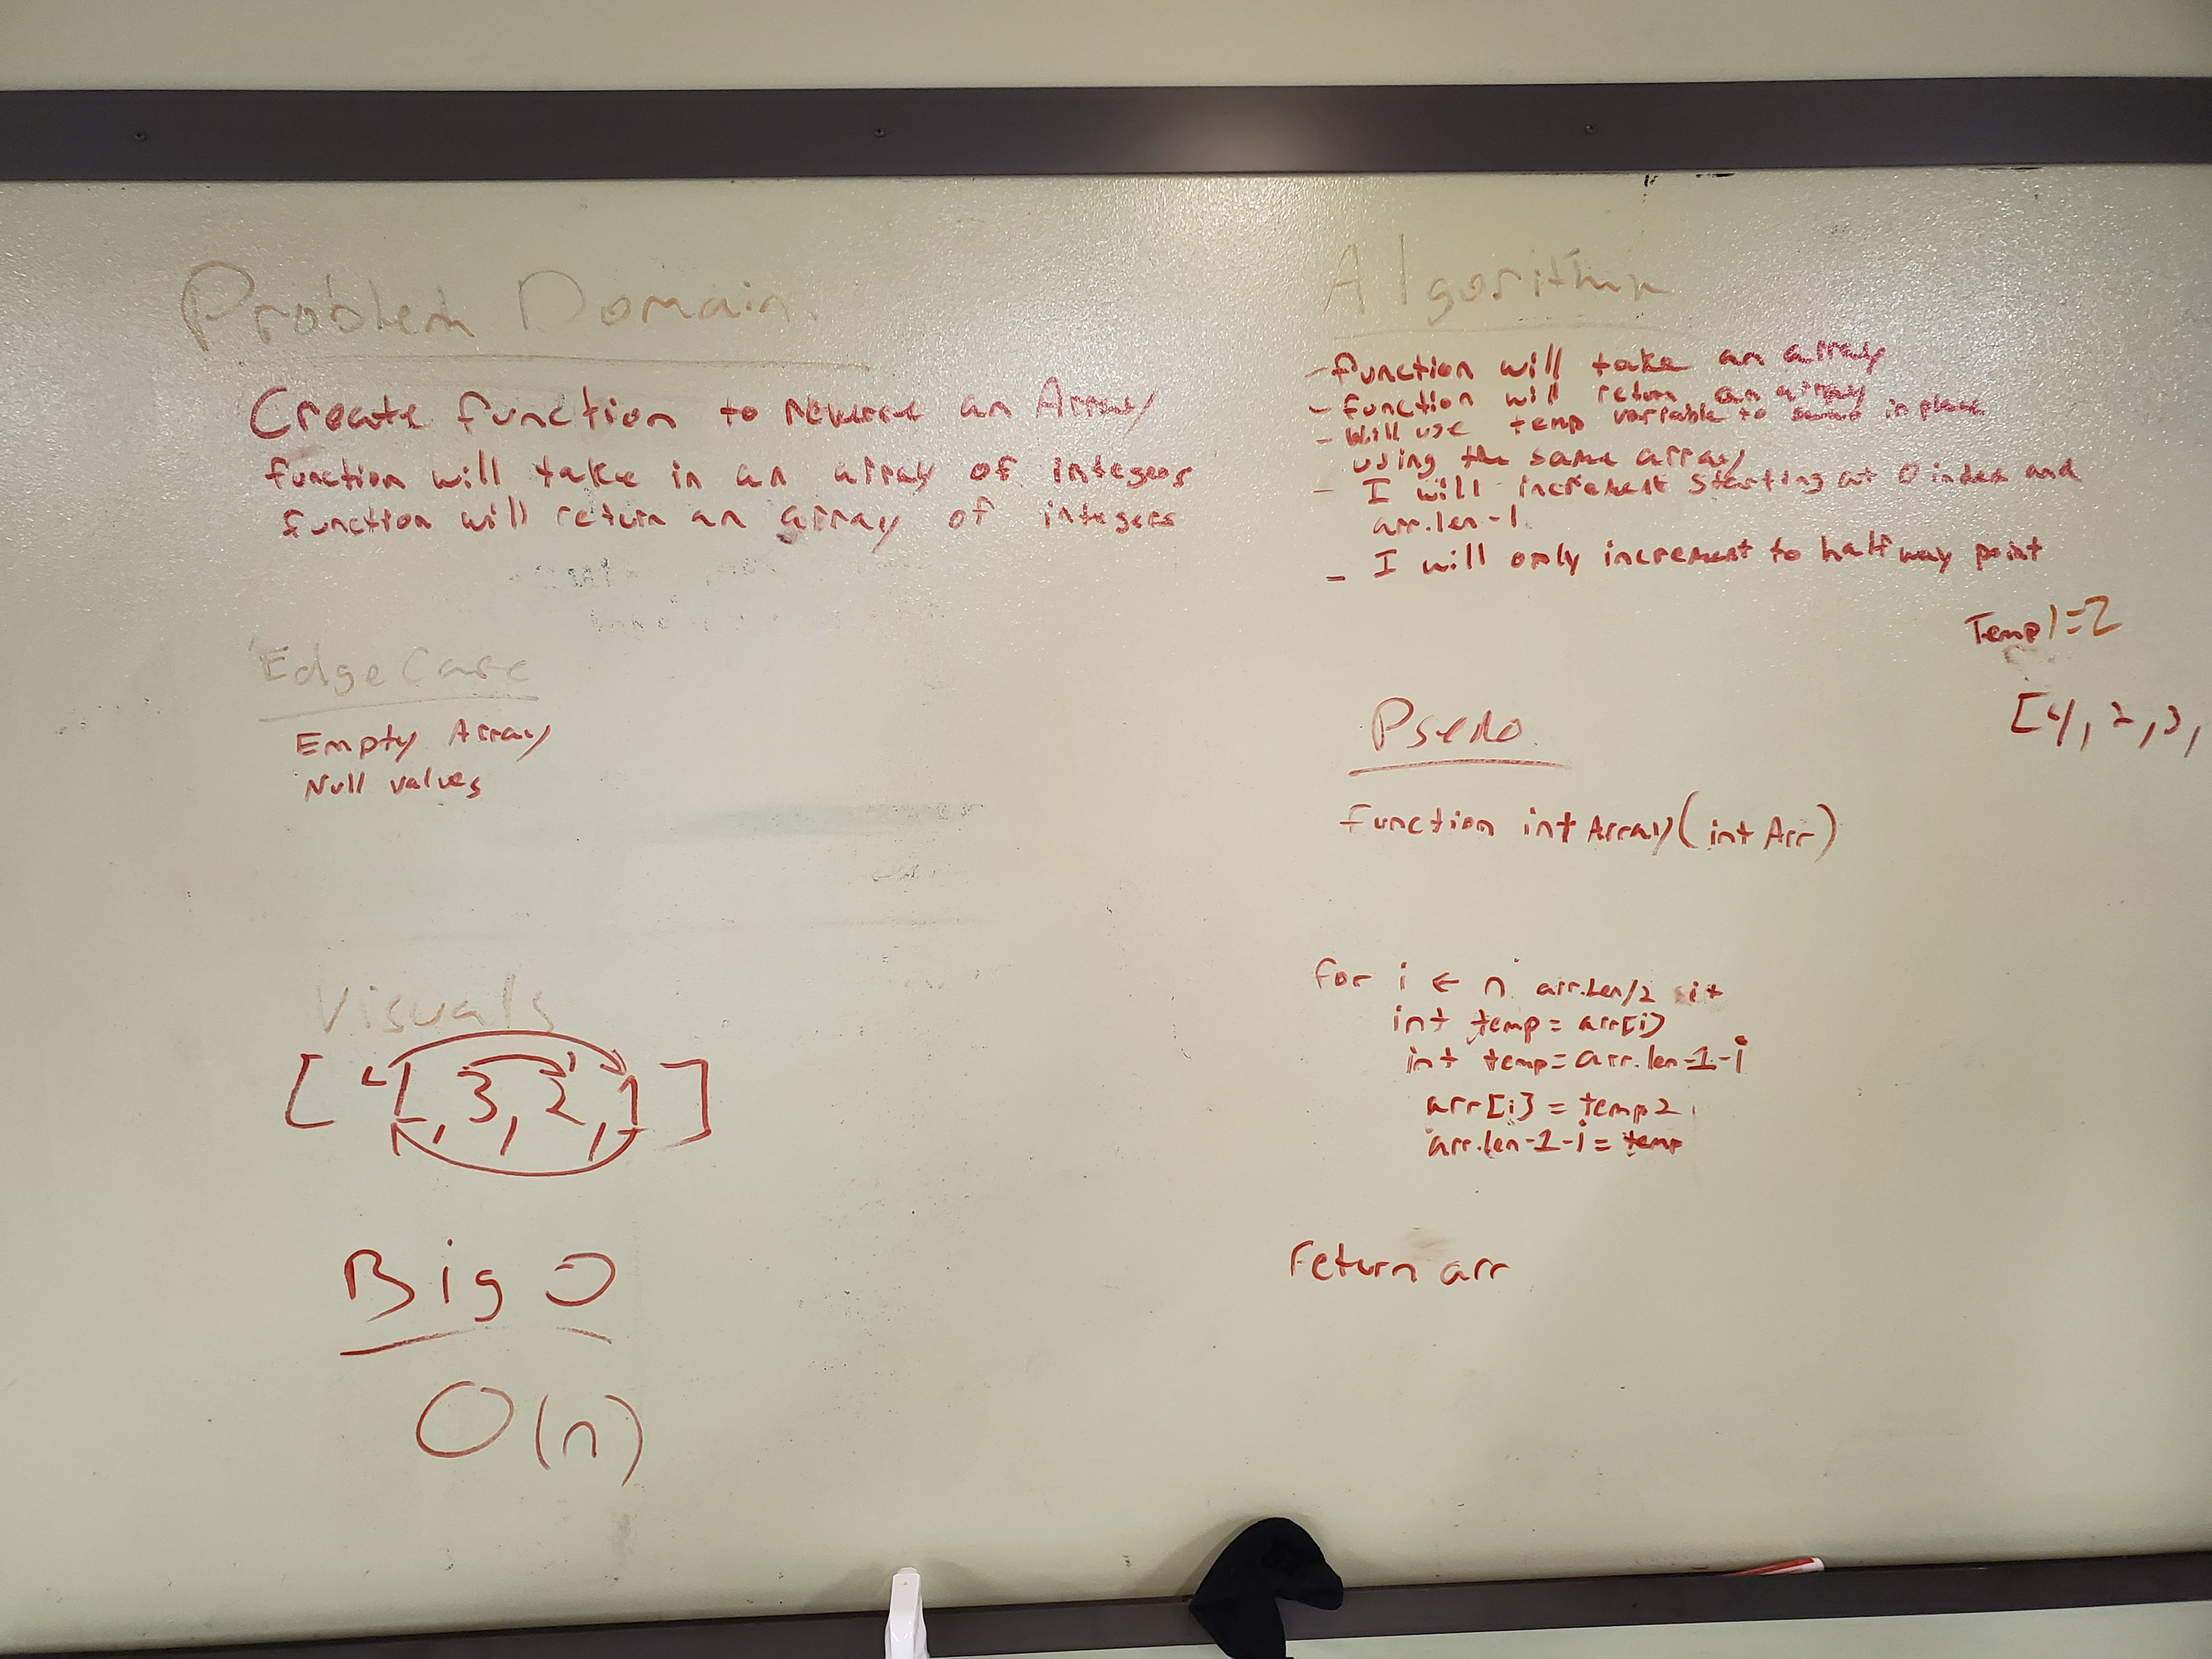 Problem Domain
Create function to reverse an Array
function will take in an array of integers
function will return an array of integers
Edge Case
Empty Array
Null values
Visuals
[4, 3, 2, 1]
Big O
O(n)
Algorithm
- function will take an array
- function will return an array
- Will use temp variable to in place
using the same array
- I will increment starting at 0 index and
arr.len-1
- I will only increment to half way point
Temp1=2
[4, 2, 3,
Psedo
function intArray(int Arr)
for i ← n arr.len/2 i+
int temp = arr[i]
int temp = arr.len-1-i
arr[i] = temp2
arr.len-1-i = temp
return arr